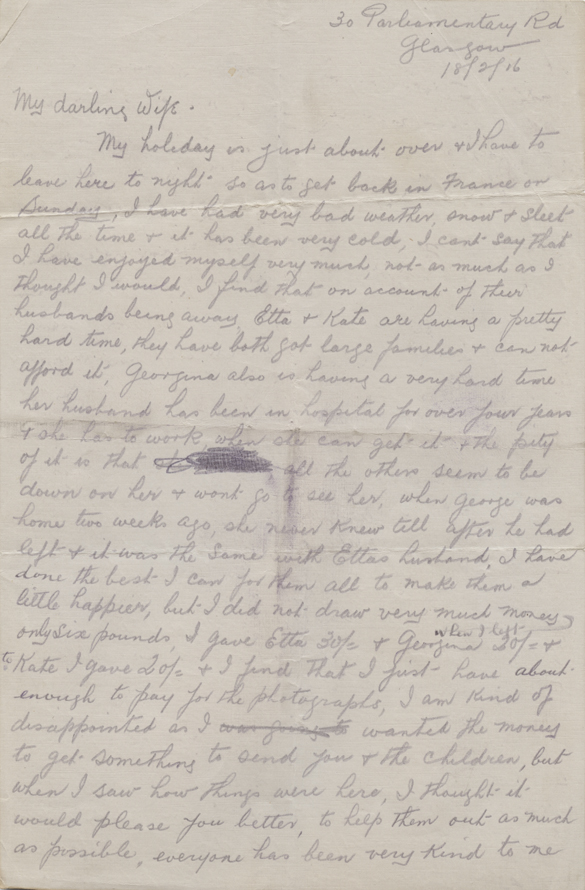 30 Parliamentary Rd
Glasgow
18/2/16
My darling Wife.
My holiday is just about over & I have to
leave here to night so as to get back in France on
Sunday, I have had very bad weather, snow & sleet
all the time & it has been very cold, I cant say that
I have enjoyed myself very much, not as much as I
thought I would, I find that on account of their
husbands being away, Etta & Kate are having a pretty
hard time, they have both got large families & can not
afford it, Georgina also is having a very hard time
her husband has been in hospital for over four years
& she has to work, when she can get it & the pity
of it is that all the others seem to be
down on her & wont go to see her, when George was
home two weeks ago, she never knew tell after he had
left & it was the same with Ettas husband, I have
done the best I can for them all to make them a
little happier, but I did not draw very much money,
only six pounds, I gave Etta 30/= & Georgina 20/= &
when I left
to Kate I gave 20/= & I find that I just have about
enough to pay for the photographs, I am kind of
disappointed as I was going to wanted the money
to get something to send you & the children, but
when I saw how things were here, I thought it
would please you better, to help them out as much
as possible, everyone has been very kind to me